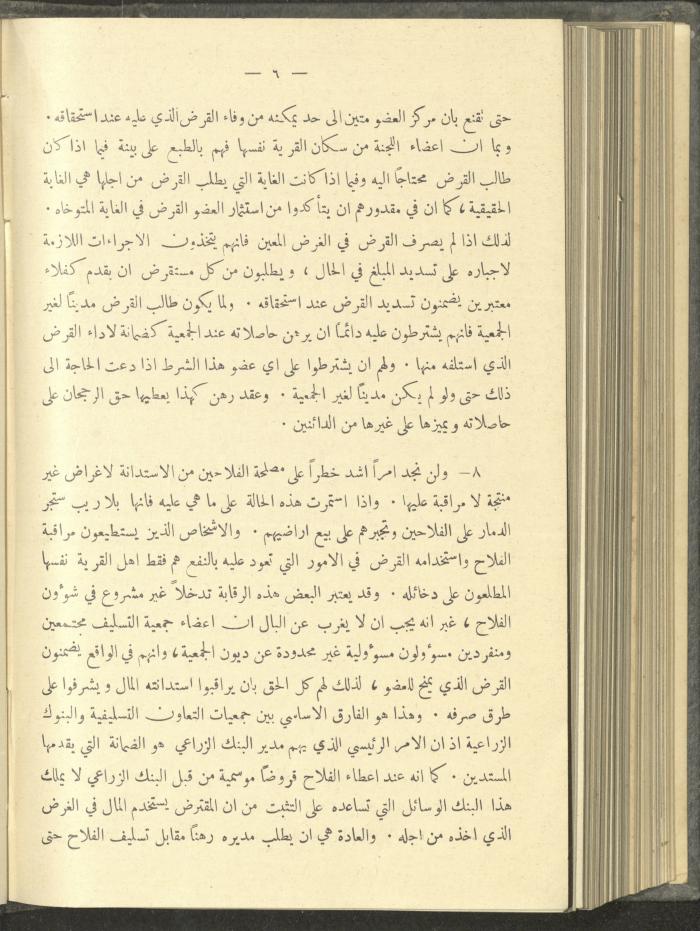 — ٦ —
حتى تقنع بان مركز العضو متين الى حد يمكنه من وفاء القرض الذي عليه عند استحقاقه .
وبما ان اعضاء اللجنة من سكان القرية نفسها فهم بالطبع على بينة فيما اذا كان
طالب القرض محتاجاً اليه وفيما اذا كانت الغاية التي يطلب القرض من اجلها هي الغاية
الحقيقية ، كما ان في مقدورهم ان يتأكدوا من استثمار العضو القرض في الغاية المتوخاه .
لذلك اذا لم يصرف القرض في الغرض المعين فانهم يتخذون الاجراءات اللازمة
لاجباره على تسديد المبلغ في الحال ، ويطلبون من كل مستقرض ان يقدم كفلاء
معتبرين يضمنون تسديد القرض عند استحقاقه . ولما يكون طالب القرض مديناً لغير
الجمعية فانهم يشترطون عليه دائماً ان يرهن حاصلاته عند الجمعية كضمانة لاداء القرض
الذي استلفه منها . ولهم ان يشترطوا على اي عضو هذا الشرط اذا دعت الحاجة الى
ذلك حتى ولو لم يكن مديناً لغير الجمعية . وعقد رهن كهذا يعطيها حق الرجحان على
حاصلاته ويميزها على غيرها من الدائنين .
٨ – ولن نجد امراً اشد خطراً على مصلحة الفلاحين من الاستدانة لاغراض غير
منتجة لا مراقبة عليها . واذا استمرت هذه الحالة على ما هي عليه فانها بلا ريب ستجر
الدمار على الفلاحين وتجبرهم على بيع اراضيهم . والاشخاص الذين يستطيعون مراقبة
الفلاح واستخدامه القرض في الامور التي تعود عليه بالنفع هم فقط اهل القرية نفسها
المطلعون على دخائله . وقد يعتبر البعض هذه الرقابة تدخلاً غير مشروع في شوٌون
الفلاح ، غير انه يجب ان لا يغرب عن البال ان اعضاء جمعية التسليف مجتمعين
ومنفردين مسوٌولون مسوٌولية غير محدودة عن ديون الجمعية ، وانهم في الواقع يضمنون
القرض الذي يمنح للعضو ، لذلك لهم كل الحق بان يراقبوا استدانته المال ويشرفوا على
طرق صرفه . وهذا هو الفارق الاساسي بين جمعيات التعاون التسليفية والبنوك
الزراعية اذ ان الامر الرئيسي الذي يهم مدير البنك الزراعي هو الضمانة التي يقدمها
المستدين . كما انه عند اعطاء الفلاح قروضاً موسمية من قبل البنك الزراعي لا يملك
هذا البنك الوسائل التي تساعده على التثبت من ان المقترض يستخدم المال في الغرض
الذي اخذه من اجله . والعادة هي ان يطلب مديره رهناً مقابل تسليف الفلاح حتى